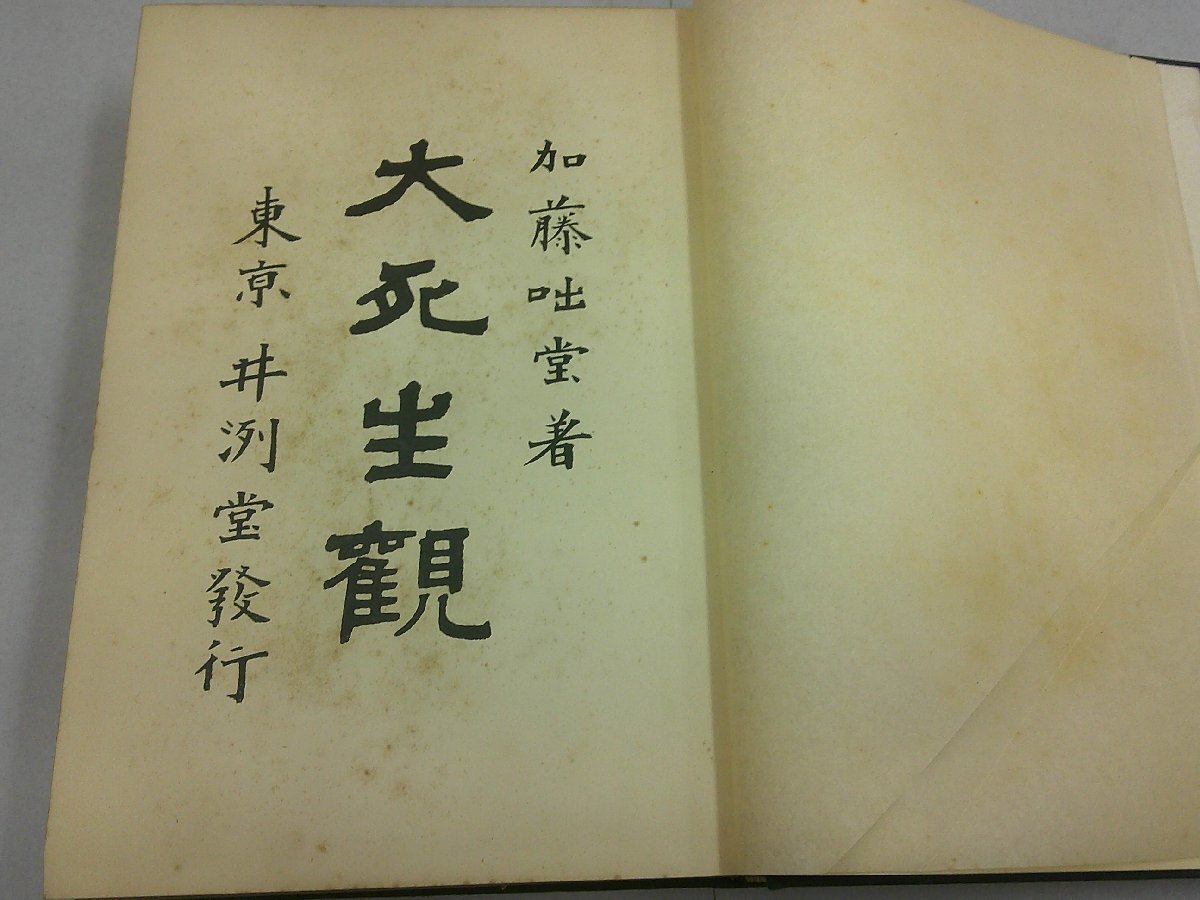 加藤咄堂著
大死生觀
東京 井洌堂發行